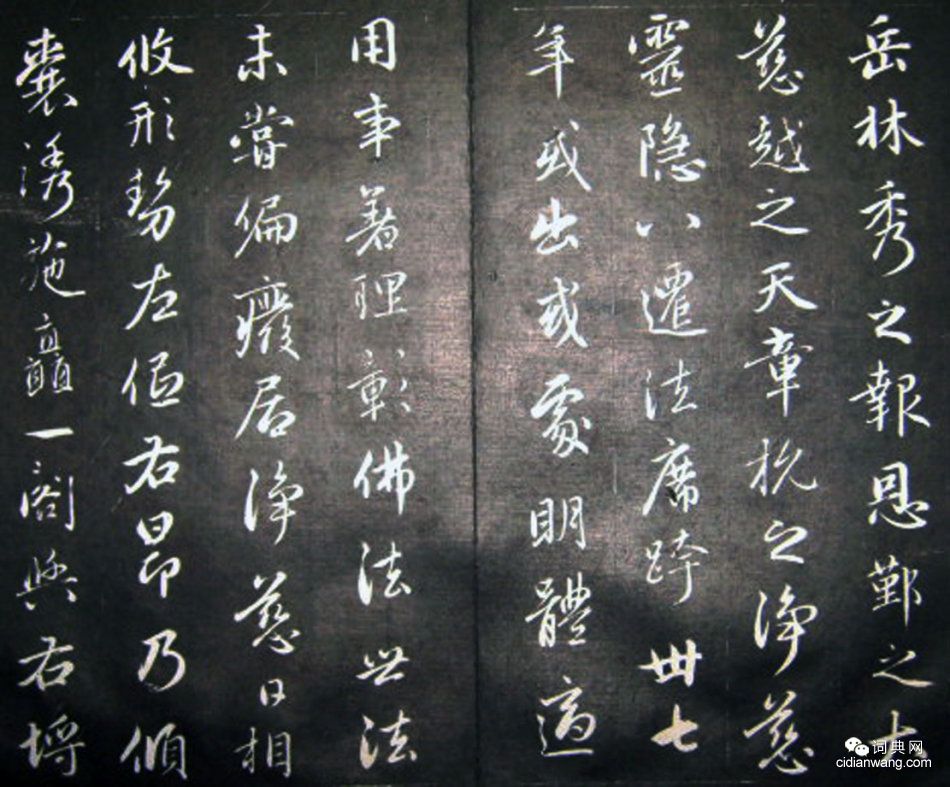 岳林秀之報恩鄞之大
慈越之天章杭之淨慈
靈隱八遷法席跨卌七
年或出或處明體適
用事著理彰佛法世法
未嘗偏廢居淨慈日相
攸形勢左伍右昂乃傾
囊誘施矗一閣與右埒
词典网
cidianwang.com